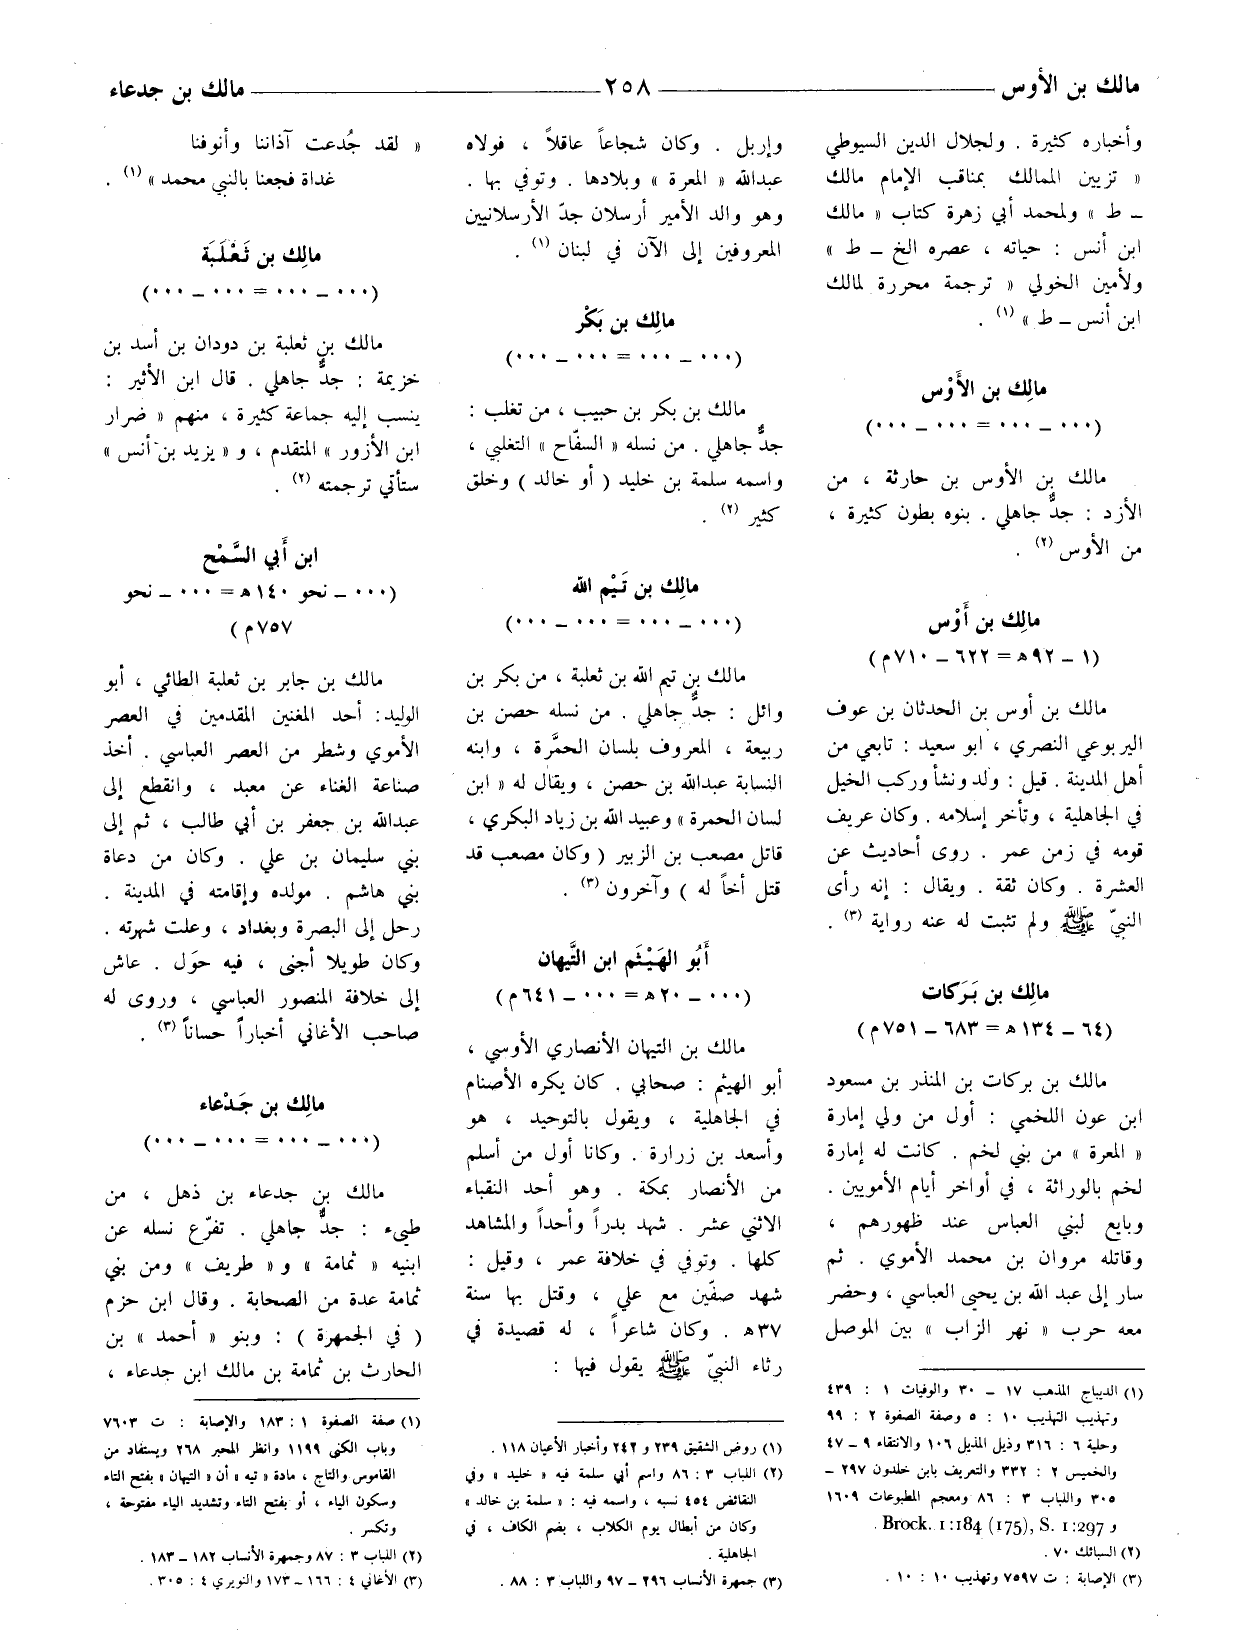 مالك بن الأوس ٢٥٨ مالك بن جدعاء
وأخباره كثيرة . ولجلال الدين السيوطي
« تزيين الممالك بمناقب الإمام مالك
ـ ط » ولمحمد أبي زهرة كتاب « مالك
ابن أنس : حياته ، عصره الخ ـ ط »
ولأمين الخولي « ترجمة محررة لمالك
ابن أنس ـ ط » (١) .
مالِك بن الأَوْس
(٠٠٠ ـ ٠٠٠ = ٠٠٠ ـ ٠٠٠)
مالك بن الأوس بن حارثة ، من
الأزد : جدٌّ جاهلي . بنوه بطون كثيرة ،
من الأوس (٢) .
مالِك بن أَوْس
(١ ـ ٩٢ه = ٦٢٢ ـ ٧١٠م)
مالك بن أوس بن الحدثان بن عوف
اليربوعي النصري ، ابو سعيد : تابعي من
أهل المدينة . قيل : ولد ونشأ وركب الخيل
في الجاهلية ، وتأخر إسلامه . وكان عريف
قومه في زمن عمر . روى أحاديث عن
العشرة . وكان ثقة . ويقال : إنه رأى
النبيّ ﷺ ولم تثبت له عنه رواية (٣) .
مالِك بن بَرَكات
(٦٤ ـ ١٣٤ ه = ٦٨٣ ـ ٧٥١م)
مالك بن بركات بن المنذر بن مسعود
ابن عون اللخمي : أول من ولي إمارة
« المعرة » من بني لخم . كانت له إمارة
لخم بالوراثة ، في أواخر أيام الأمويين .
وبايع لبني العباس عند ظهورهم ،
وقاتله مروان بن محمد الأموي . ثم
سار إلى عبد الله بن يحيى العباسي ، وحضر
معه حرب « نهر الزاب » بين الموصل
(١) الديباج المذهب ١٧ ـ ٣٠ والوفيات ١ : ٤٣٩
وتهذيب التهذيب ١٠ : ٥ وصفة الصفوة ٢ : ٩٩
وحلية ٦ : ٣١٦ وذيل المذيل ١٠٦ والانتقاء ٩ ـ ٤٧
والخميس ٢ : ٣٣٢ والتعريف بابن خلدون ٢٩٧ ـ
٣٠٥ واللباب ٣ : ٨٦ ومعجم المطبوعات ١٦٠٩
و Brock. 1:184 (175), S. 1:297 .
(٢) السبائك ٧٠ .
(٣) الإصابة : ت ٧٥٩٧ وتهذيب ١٠ : ١٠ .
وإربل . وكان شجاعاً عاقلاً ، فولاه
عبدالله « المعرة » وبلادها . وتوفي بها .
وهو والد الأمير أرسلان جدّ الأرسلانيين
المعروفين إلى الآن في لبنان (١) .
مالِك بن بَكْر
(٠٠٠ ـ ٠٠٠ = ٠٠٠ ـ ٠٠٠)
مالك بن بكر بن حبيب ، من تغلب :
جدٌّ جاهلي . من نسله « السفّاح » التغلبي ،
واسمه سلمة بن خليد ( أو خالد ) وخلق
كثير (٢) .
مالِك بن تَيْم الله
(٠٠٠ ـ ٠٠٠ = ٠٠٠ ـ ٠٠٠)
مالك بن تيم الله بن ثعلبة ، من بكر بن
وائل : جدٌّ جاهلي . من نسله حصن بن
ربيعة ، المعروف بلسان الحمَّرة ، وابنه
النسابة عبدالله بن حصن ، ويقال له « ابن
لسان الحمرة » وعبيد الله بن زياد البكري ،
قاتل مصعب بن الزبير ( وكان مصعب قد
قتل أخاً له ) وآخرون (٣) .
أَبُو الهَيْثَم ابن التَّيهان
(٠٠٠ ـ ٢٠ه = ٠٠٠ ـ ٦٤١م)
مالك بن التيهان الأنصاري الأوسي ،
أبو الهيثم : صحابي . كان يكره الأصنام
في الجاهلية ، ويقول بالتوحيد ، هو
وأسعد بن زرارة . وكانا أول من أسلم
من الأنصار بمكة . وهو أحد النقباء
الاثني عشر . شهد بدراً وأحداً والمشاهد
كلها . وتوفي في خلافة عمر ، وقيل :
شهد صفّين مع علي ، وقتل بها سنة
٣٧ه . وكان شاعراً ، له قصيدة في
رثاء النبيّ ﷺ يقول فيها :
(١) روض الشقيق ٢٣٩ و ٢٤٢ وأخبار الأعيان ١١٨ .
(٢) اللباب ٣ : ٨٦ واسم أبي سلمة فيه « خليد » وفي
النقائض ٤٥٤ نسبه ، واسمه فيه : « سلمة بن خالد »
وكان من أبطال يوم الكلاب ، بضم الكاف ، في
الجاهلية .
(٣) جمهرة الأنساب ٢٩٦ ـ ٩٧ واللباب ٣ : ٨٨ .
« لقد جُدعت آذاننا وأنوفنا
غداة فجعنا بالنبي محمد » (١) .
مالِك بن ثَعْلَبَة
(٠٠٠ ـ ٠٠٠ = ٠٠٠ ـ ٠٠٠)
مالك بن ثعلبة بن دودان بن أسد بن
خزيمة : جدٌّ جاهلي . قال ابن الأثير :
ينسب إليه جماعة كثيرة ، منهم « ضرار
ابن الأزور » المتقدم ، و « يزيد بن أنس »
ستأتي ترجمته (٢) .
ابن أَبي السَّمْح
(٠٠٠ ـ نحو ١٤٠ه = ٠٠٠ ـ نحو
٧٥٧م)
مالك بن جابر بن ثعلبة الطائي ، أبو
الوليد : أحد المغنين المقدمين في العصر
الأموي وشطر من العصر العباسي . أخذ
صناعة الغناء عن معبد ، وانقطع إلى
عبدالله بن جعفر بن أبي طالب ، ثم إلى
بني سليمان بن علي . وكان من دعاة
بني هاشم . مولده وإقامته في المدينة .
رحل إلى البصرة وبغداد ، وعلت شهرته .
وكان طويلا أجنى ، فيه حوَل . عاش
إلى خلافة المنصور العباسي ، وروى له
صاحب الأغاني أخباراً حساناً (٣) .
مالِك بن جَدْعاء
(٠٠٠ ـ ٠٠٠ = ٠٠٠ ـ ٠٠٠)
مالك بن جدعاء بن ذهل ، من
طيىء : جدٌّ جاهلي . تفرّع نسله عن
ابنيه « ثمامة » و« طريف » ومن بني
ثمامة عدة من الصحابة . وقال ابن حزم
( في الجمهرة ) : وبنو « أحمد » بن
الحارث بن ثمامة بن مالك ابن جدعاء ،
(١) صفة الصفوة ١ : ١٨٣ والإصابة : ت ٧٦٠٣
وباب الكنى ١١٩٩ وانظر المحبر ٢٦٨ ويستفاد من
القاموس والتاج ، مادة « تيه » أن « التيهان » بفتح التاء
وسكون الياء ، أو بفتح التاء وتشديد الياء مفتوحة ،
وتكسر .
(٢) اللباب ٣ : ٨٧ وجمهرة الأنساب ١٨٢ ـ ١٨٣ .
(٣) الأغاني ٤ : ١٦٦ ـ ١٧٣ والنويري ٤ : ٣٠٥ .